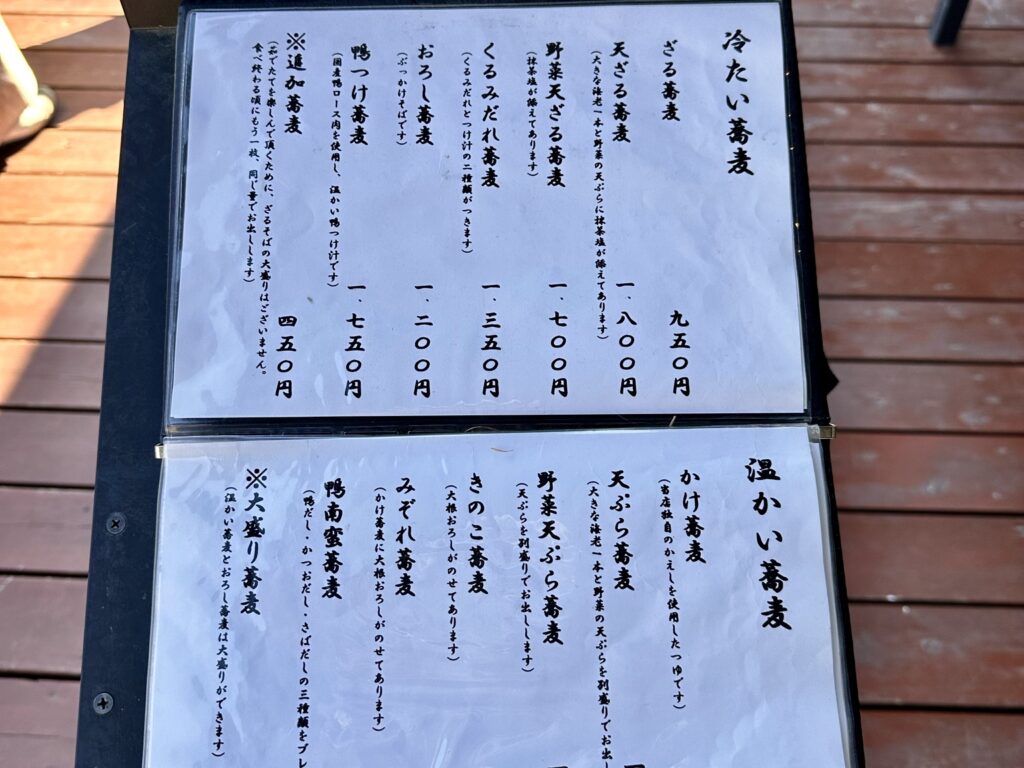 冷たい蕎麦
ざる蕎麦 九五〇円
天ざる蕎麦 一、八〇〇円
(大きな海老一本と野菜の天ぷらに抹茶塩が添えてあります)
野菜天ざる蕎麦 一、七〇〇円
(抹茶塩が添えてあります)
くるみだれ蕎麦 一、三五〇円
(くるみだれとつけ汁の二種類がつきます)
おろし蕎麦 一、二〇〇円
(ぶっかけそばです)
鴨つけ蕎麦 一、七五〇円
(国産鴨ロース肉を使用し、温かい鴨つけ汁です)
※追加蕎麦 四五〇円
(茹でたてを楽しんで頂くために、ざるそばの大盛りはございません。
食べ終わる頃にもう一枚、同じ量でお出しします)
温かい蕎麦
かけ蕎麦
(当店独自のかえしを使用したつゆです)
天ぷら蕎麦
(大きな海老一本と野菜の天ぷらを別盛りでお出し
野菜天ぷら蕎麦
(天ぷらを別盛りでお出しします)
きのこ蕎麦
(大根おろしがのせてあります)
みぞれ蕎麦
(かけ蕎麦に大根おろしがのせてあります)
鴨南蛮蕎麦
(鴨だし・かつおだし・さばだしの三種類をブレ
※大盛り蕎麦
(温かい蕎麦とおろし蕎麦は大盛りができます)